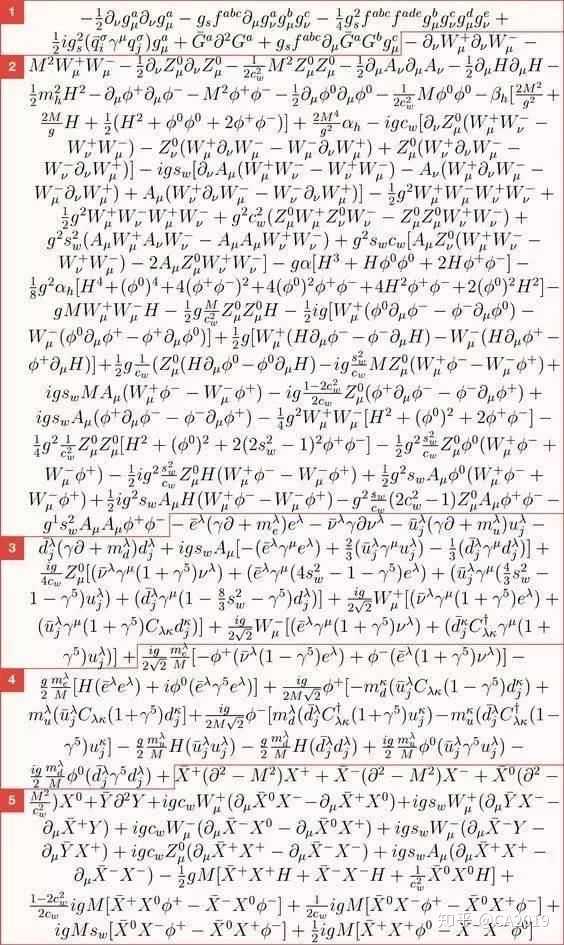 1 $-\frac{1}{2}\partial_\nu g^a_\mu \partial_\nu g^a_\mu - g_s f^{abc}\partial_\mu g^a_\nu g^b_\mu g^c_\nu - \frac{1}{4}g^2_s f^{abc}f^{ade}g^b_\mu g^c_\nu g^d_\mu g^e_\nu +$
$\frac{1}{2}ig^2_s(\bar{q}^\sigma_i\gamma^\mu q^\sigma_j)g^a_\mu + \bar{G}^a\partial^2 G^a + g_s f^{abc}\partial_\mu \bar{G}^a G^b g^c_\mu - \partial_\nu W^+_\mu \partial_\nu W^-_\mu -$
2 $M^2 W^+_\mu W^-_\mu - \frac{1}{2}\partial_\nu Z^0_\mu \partial_\nu Z^0_\mu - \frac{1}{2c^2_w}M^2 Z^0_\mu Z^0_\mu - \frac{1}{2}\partial_\mu A_\nu \partial_\mu A_\nu - \frac{1}{2}\partial_\mu H \partial_\mu H -$
$\frac{1}{2}m^2_h H^2 - \partial_\mu \phi^+ \partial_\mu \phi^- - M^2\phi^+\phi^- - \frac{1}{2}\partial_\mu \phi^0 \partial_\mu \phi^0 - \frac{1}{2c^2_w}M\phi^0\phi^0 - \beta_h[\frac{2M^2}{g^2} +$
$\frac{2M}{g}H + \frac{1}{2}(H^2 + \phi^0\phi^0 + 2\phi^+\phi^-)] + \frac{2M^4}{g^2}\alpha_h - igc_w[\partial_\nu Z^0_\mu(W^+_\mu W^-_\nu -$
$W^+_\nu W^-_\mu) - Z^0_\nu(W^+_\mu \partial_\nu W^-_\mu - W^-_\mu \partial_\nu W^+_\mu) + Z^0_\mu(W^+_\nu \partial_\nu W^-_\mu -$
$W^-_\nu \partial_\nu W^+_\mu)] - igs_w[\partial_\nu A_\mu(W^+_\mu W^-_\nu - W^+_\nu W^-_\mu) - A_\nu(W^+_\mu \partial_\nu W^-_\mu -$
$W^-_\mu \partial_\nu W^+_\mu) + A_\mu(W^+_\nu \partial_\nu W^-_\mu - W^-_\nu \partial_\nu W^+_\mu)] - \frac{1}{2}g^2 W^+_\mu W^-_\mu W^+_\nu W^-_\nu +$
$\frac{1}{2}g^2 W^+_\mu W^-_\nu W^+_\mu W^-_\nu + g^2 c^2_w(Z^0_\mu W^+_\mu Z^0_\nu W^-_\nu - Z^0_\mu Z^0_\mu W^+_\nu W^-_\nu) +$
$g^2 s^2_w(A_\mu W^+_\mu A_\nu W^-_\nu - A_\mu A_\mu W^+_\nu W^-_\nu) + g^2 s_w c_w[A_\mu Z^0_\nu(W^+_\mu W^-_\nu -$
$W^+_\nu W^-_\mu) - 2A_\mu Z^0_\mu W^+_\nu W^-_\nu] - g\alpha[H^3 + H\phi^0\phi^0 + 2H\phi^+\phi^-] -$
$\frac{1}{8}g^2\alpha_h[H^4 + (\phi^0)^4 + 4(\phi^+\phi^-)^2 + 4(\phi^0)^2\phi^+\phi^- + 4H^2\phi^+\phi^- + 2(\phi^0)^2 H^2] -$
$gMW^+_\mu W^-_\mu H - \frac{1}{2}g\frac{M}{c^2_w}Z^0_\mu Z^0_\mu H - \frac{1}{2}ig[W^+_\mu(\phi^0\partial_\mu \phi^- - \phi^-\partial_\mu \phi^0) -$
$W^-_\mu(\phi^0\partial_\mu \phi^+ - \phi^+\partial_\mu \phi^0)] + \frac{1}{2}g[W^+_\mu(H\partial_\mu \phi^- - \phi^-\partial_\mu H) - W^-_\mu(H\partial_\mu \phi^+ -$
$\phi^+\partial_\mu H)] + \frac{1}{2}g\frac{1}{c_w}(Z^0_\mu(H\partial_\mu \phi^0 - \phi^0\partial_\mu H) - ig\frac{s^2_w}{c_w}MZ^0_\mu(W^+_\mu \phi^- - W^-_\mu \phi^+) +$
$igs_w MA_\mu(W^+_\mu \phi^- - W^-_\mu \phi^+) - ig\frac{1-2c^2_w}{2c_w}Z^0_\mu(\phi^+\partial_\mu \phi^- - \phi^-\partial_\mu \phi^+) +$
$igs_w A_\mu(\phi^+\partial_\mu \phi^- - \phi^-\partial_\mu \phi^+) - \frac{1}{4}g^2 W^+_\mu W^-_\mu[H^2 + (\phi^0)^2 + 2\phi^+\phi^-] -$
$\frac{1}{4}g^2\frac{1}{c^2_w}Z^0_\mu Z^0_\mu[H^2 + (\phi^0)^2 + 2(2s^2_w - 1)^2\phi^+\phi^-] - \frac{1}{2}g^2\frac{s^2_w}{c_w}Z^0_\mu \phi^0(W^+_\mu \phi^- +$
$W^-_\mu \phi^+) - \frac{1}{2}ig^2\frac{s^2_w}{c_w}Z^0_\mu H(W^+_\mu \phi^- - W^-_\mu \phi^+) + \frac{1}{2}g^2 s_w A_\mu \phi^0(W^+_\mu \phi^- +$
$W^-_\mu \phi^+) + \frac{1}{2}ig^2 s_w A_\mu H(W^+_\mu \phi^- - W^-_\mu \phi^+) - g^2\frac{s_w}{c_w}(2c^2_w - 1)Z^0_\mu A_\mu \phi^+\phi^- -$
$g^1 s^2_w A_\mu A_\mu \phi^+\phi^- - \bar{e}^\lambda(\gamma\partial + m^\lambda_e)e^\lambda - \bar{\nu}^\lambda\gamma\partial\nu^\lambda - \bar{u}^\lambda_j(\gamma\partial + m^\lambda_u)u^\lambda_j -$
3 $\bar{d}^\lambda_j(\gamma\partial + m^\lambda_d)d^\lambda_j + igs_w A_\mu[-(\bar{e}^\lambda\gamma^\mu e^\lambda) + \frac{2}{3}(\bar{u}^\lambda_j\gamma^\mu u^\lambda_j) - \frac{1}{3}(\bar{d}^\lambda_j\gamma^\mu d^\lambda_j)] +$
$\frac{ig}{4c_w}Z^0_\mu[(\bar{\nu}^\lambda\gamma^\mu(1 + \gamma^5)\nu^\lambda) + (\bar{e}^\lambda\gamma^\mu(4s^2_w - 1 - \gamma^5)e^\lambda) + (\bar{u}^\lambda_j\gamma^\mu(\frac{4}{3}s^2_w -$
$1 - \gamma^5)u^\lambda_j) + (\bar{d}^\lambda_j\gamma^\mu(1 - \frac{8}{3}s^2_w - \gamma^5)d^\lambda_j)] + \frac{ig}{2\sqrt{2}}W^+_\mu[(\bar{\nu}^\lambda\gamma^\mu(1 + \gamma^5)e^\lambda) +$
$(\bar{u}^\lambda_j\gamma^\mu(1 + \gamma^5)C_{\lambda\kappa}d^\kappa_j)] + \frac{ig}{2\sqrt{2}}W^-_\mu[(\bar{e}^\lambda\gamma^\mu(1 + \gamma^5)\nu^\lambda) + (\bar{d}^\kappa_j C^\dagger_{\lambda\kappa}\gamma^\mu(1 +$
$\gamma^5)u^\lambda_j)] + \frac{ig}{2\sqrt{2}}\frac{m^\lambda_e}{M}[-\phi^+(\bar{\nu}^\lambda(1 - \gamma^5)e^\lambda) + \phi^-(\bar{e}^\lambda(1 + \gamma^5)\nu^\lambda)] -$
4 $\frac{g}{2}\frac{m^\lambda_e}{M}[H(\bar{e}^\lambda e^\lambda) + i\phi^0(\bar{e}^\lambda\gamma^5 e^\lambda)] + \frac{ig}{2M\sqrt{2}}\phi^+[-m^\kappa_d(\bar{u}^\lambda_j C_{\lambda\kappa}(1 - \gamma^5)d^\kappa_j) +$
$m^\lambda_u(\bar{u}^\lambda_j C_{\lambda\kappa}(1 + \gamma^5)d^\kappa_j] + \frac{ig}{2M\sqrt{2}}\phi^-[m^\lambda_d(\bar{d}^\lambda_j C^\dagger_{\lambda\kappa}(1 + \gamma^5)u^\kappa_j) - m^\kappa_u(\bar{d}^\lambda_j C^\dagger_{\lambda\kappa}(1 -$
$\gamma^5)u^\kappa_j] - \frac{g}{2}\frac{m^\lambda_u}{M}H(\bar{u}^\lambda_j u^\lambda_j) - \frac{g}{2}\frac{m^\lambda_d}{M}H(\bar{d}^\lambda_j d^\lambda_j) + \frac{ig}{2}\frac{m^\lambda_u}{M}\phi^0(\bar{u}^\lambda_j\gamma^5 u^\lambda_j) -$
$\frac{ig}{2}\frac{m^\lambda_d}{M}\phi^0(\bar{d}^\lambda_j\gamma^5 d^\lambda_j) + \bar{X}^+(\partial^2 - M^2)X^+ + \bar{X}^-(\partial^2 - M^2)X^- + \bar{X}^0(\partial^2 -$
5 $\frac{M^2}{c^2_w})X^0 + \bar{Y}\partial^2 Y + igc_w W^+_\mu(\partial_\mu \bar{X}^0 X^- - \partial_\mu \bar{X}^+ X^0) + igs_w W^+_\mu(\partial_\mu \bar{Y}X^- -$
$\partial_\mu \bar{X}^+ Y) + igc_w W^-_\mu(\partial_\mu \bar{X}^- X^0 - \partial_\mu \bar{X}^0 X^+) + igs_w W^-_\mu(\partial_\mu \bar{X}^- Y -$
$\partial_\mu \bar{Y}X^+) + igc_w Z^0_\mu(\partial_\mu \bar{X}^+ X^+ - \partial_\mu \bar{X}^- X^-) + igs_w A_\mu(\partial_\mu \bar{X}^+ X^+ -$
$\partial_\mu \bar{X}^- X^-) - \frac{1}{2}gM[\bar{X}^+ X^+ H + \bar{X}^- X^- H + \frac{1}{c^2_w}\bar{X}^0 X^0 H] +$
$\frac{1-2c^2_w}{2c_w}igM[\bar{X}^+ X^0\phi^+ - \bar{X}^- X^0\phi^-] + \frac{1}{2c_w}igM[\bar{X}^0 X^-\phi^+ - \bar{X}^0 X^+\phi^-] +$
$igMs_w[\bar{X}^0 X^-\phi^+ - \bar{X}^0 X^+\phi^-] + \frac{1}{2}igM[\bar{X}^+ X^+\phi^0 - \bar{X}^- X^-\phi^0]$
知乎 @CA2019